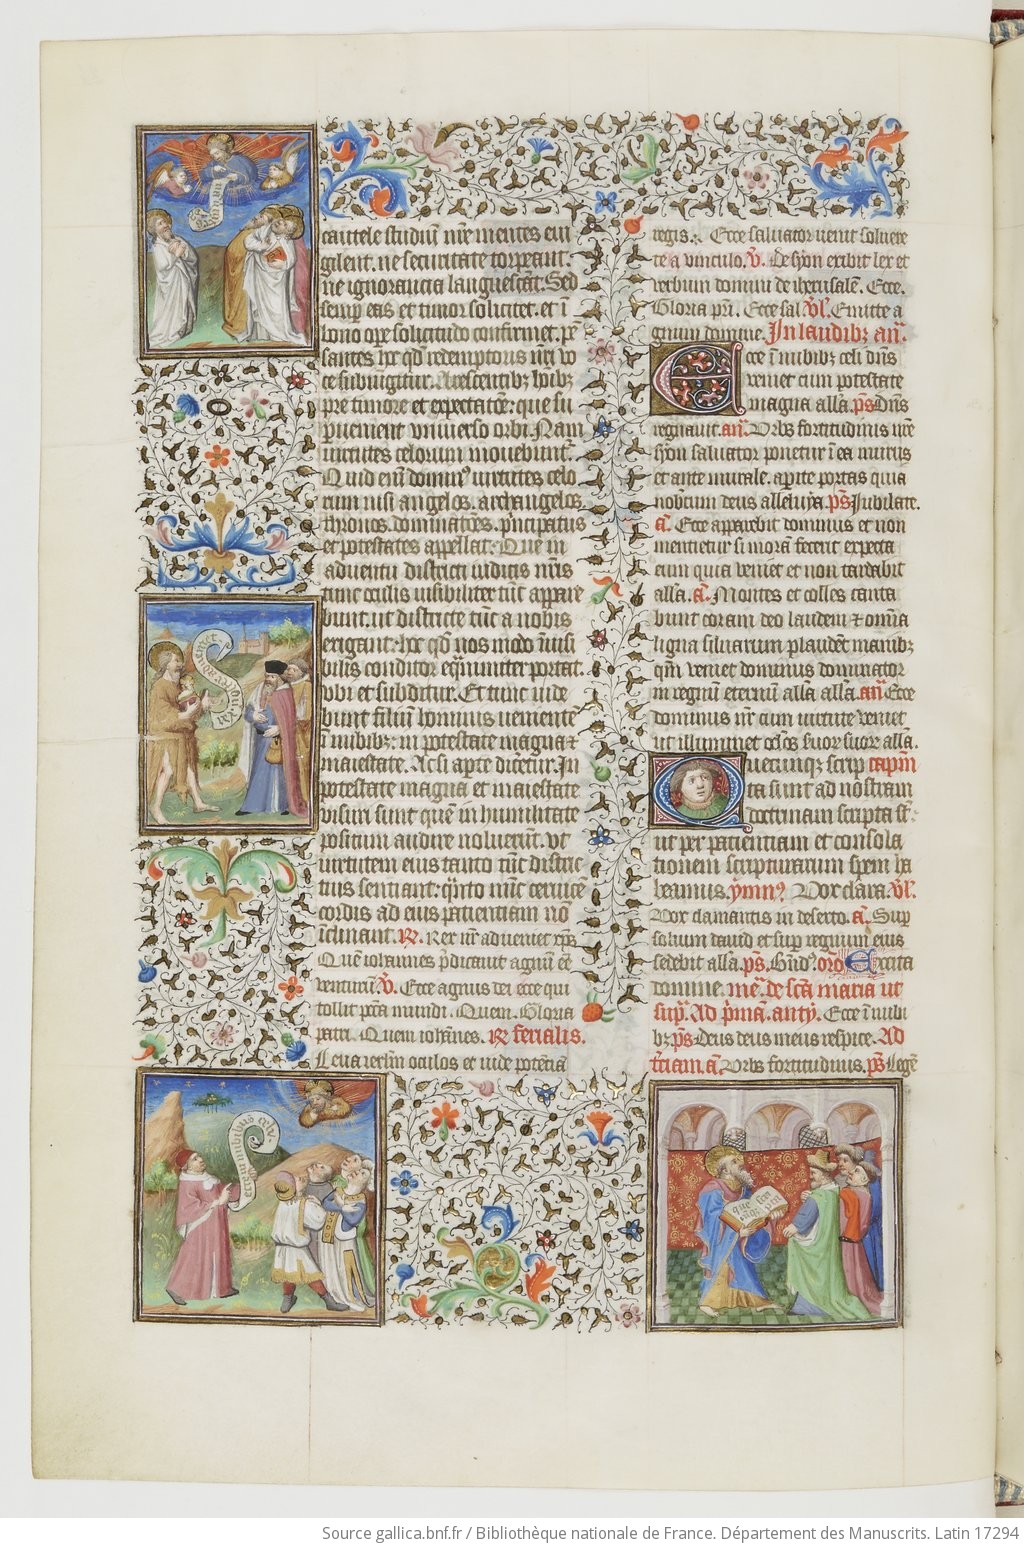 cautele studiu mre mentes eui
gilent. ne securitate torpeant.
ne ignorancia languescat. Sed
semp eas et timor solicitet. et i
bono ope solicitudo confirmet. pe
santes hec qd redemptoris nri vo
ce subiungitur. Arescentibz hoibz
pre timore et expectacoe: que su
puenient vniuerso orbi. Nam
virtutes celorum mouebunt.
Quid eni domin9 virtutes celo
rum nisi angelos. archangelos
thronos. dominacoes. pncipatus
et potestates appellat. Que in
aduentu districti iudicis nris
tunc oculis uisibiliter tuc appare
bunt. ut districte tuc a nobis
exigant. hec qd nos modo inuisi
bilis conditor equnimiter portat.
vbi et subditur. Et tunc uide
bunt filiu hominis ueniente
i nubibz. in potestate magna et
maiestate. Ac si apte diceret. In
potestate magna et maiestate
visuri sunt que in humilitate
positum audire noluerunt. vt
virtutem eius tanto tuc distric
tius sentiant: qnto nuc ceruice
cordis ad eius patientiam no
iclinant. R. Rex nr adueniet xps
Que iohannes pdicauit agnu ee
venturu. V. Ecce agnus dei ecce qui
tollit pcta mundi. Quem. Gloria
patri. Quem iohanes. R ferialis.
Leua ierlm oculos et uide potecia
regis. Ecce saluator uenit soluere
te a vinculo. V. De syon exibit lex et
verbum domini de iherusale. Ecce.
Gloria pri. Ecce sal. Vl. Emitte a
gnum domine. In laudibz an.
Ecce i nubibz celi dns
veniet cum potestate
magna alla. ps Dns
regnauit. an. Vrbs fortitudinis nre
syon saluator ponetur i ea murus
et ante murale. apite portas quia
nobiscum deus alleluya. ps Iubilate.
a. Ecce apparebit dominus et non
mentietur si mora fecerit expecta
eum quia veniet et non tardabit
alla. a. Montes et colles canta
bunt coram deo laudem et omia
ligna siluarum plaudet manibz
qm veniet dominus dominator
in regnu eternu alla alla. an Ecce
dominus nr cum virtute veniet
ut illuminet oclos suor suor alla.
Quecunqz scrip capm
ta sunt ad nostram
doctrinam scripta st.
ut per patientiam et consola
tionem scripturarum spem ha
beamus. ymn9 Vox clara. Vl.
Vox clamantis in deserto. a. Sup
solium dauid et sup regnum eius
sedebit alla. ps. Bnd9. oro Excita
domine. me. de sca maria ut
sup. Ad pma. anty. Ecce i nubi
bz ps Deus deus meus respice. Ad
tciam. a. Vrbs fortitudinis. ps Lege
erunt signa in sole
Source gallica.bnf.fr / Bibliothèque nationale de France. Département des Manuscrits. Latin 17294